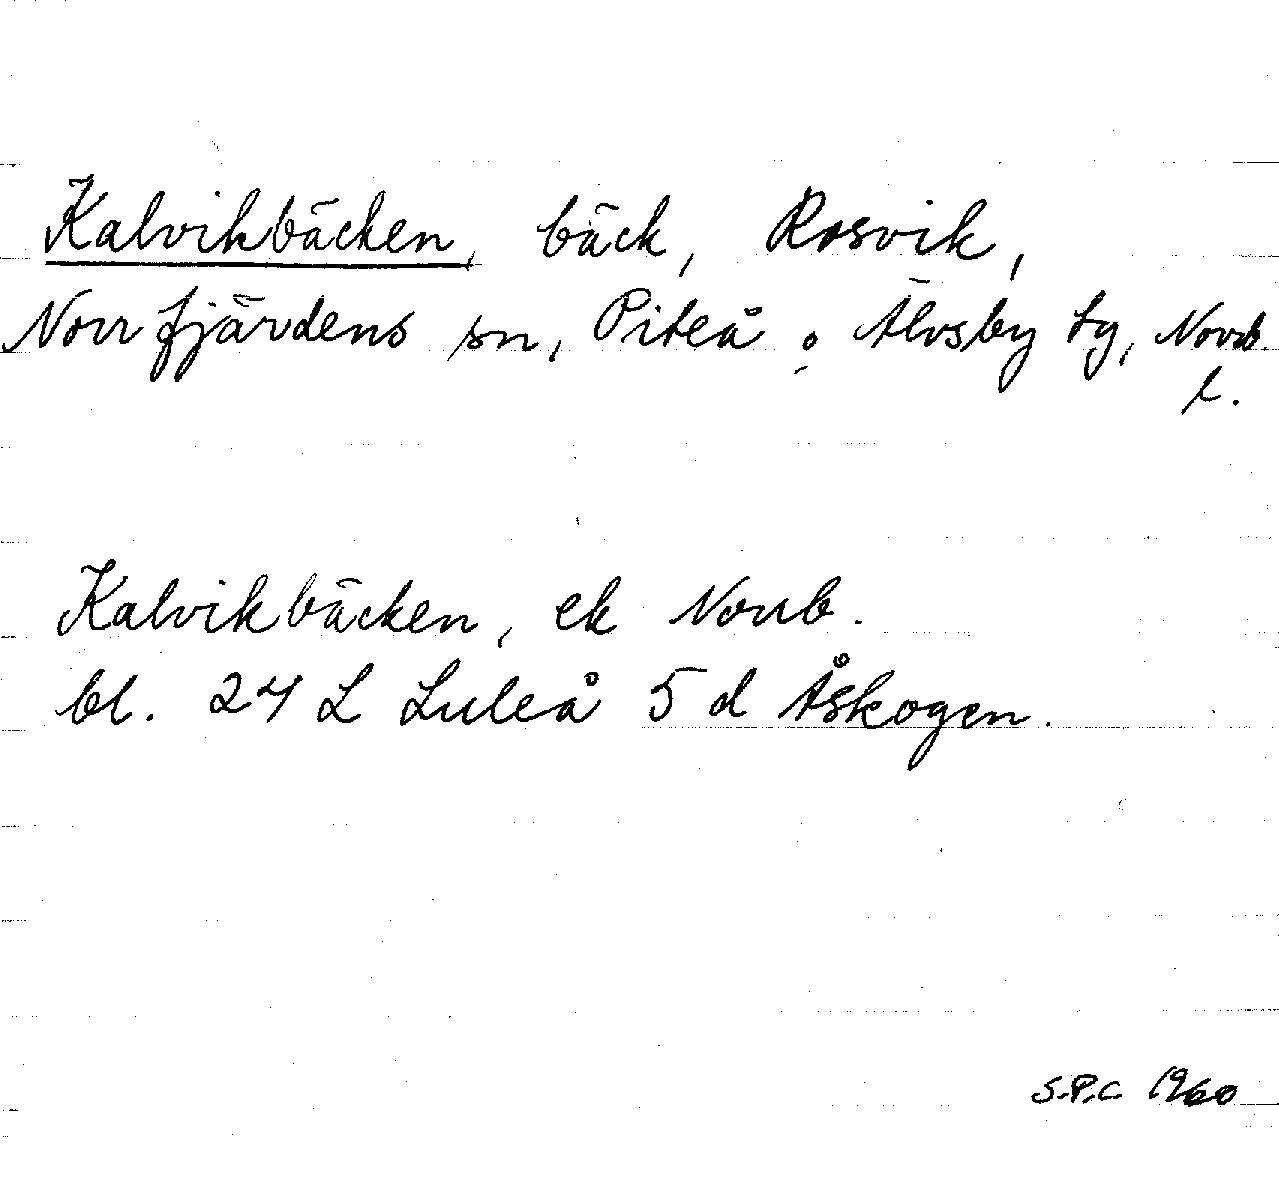 Kalvikbäcken, bäck, Rosvik,
Norrfjärdens sn, Piteå o Älvsby tg, Norrb
l.
Kalvikbäcken, ek Norrb.
bl. 24 L Luleå 5 d Åskogen.
S.P.C 1960